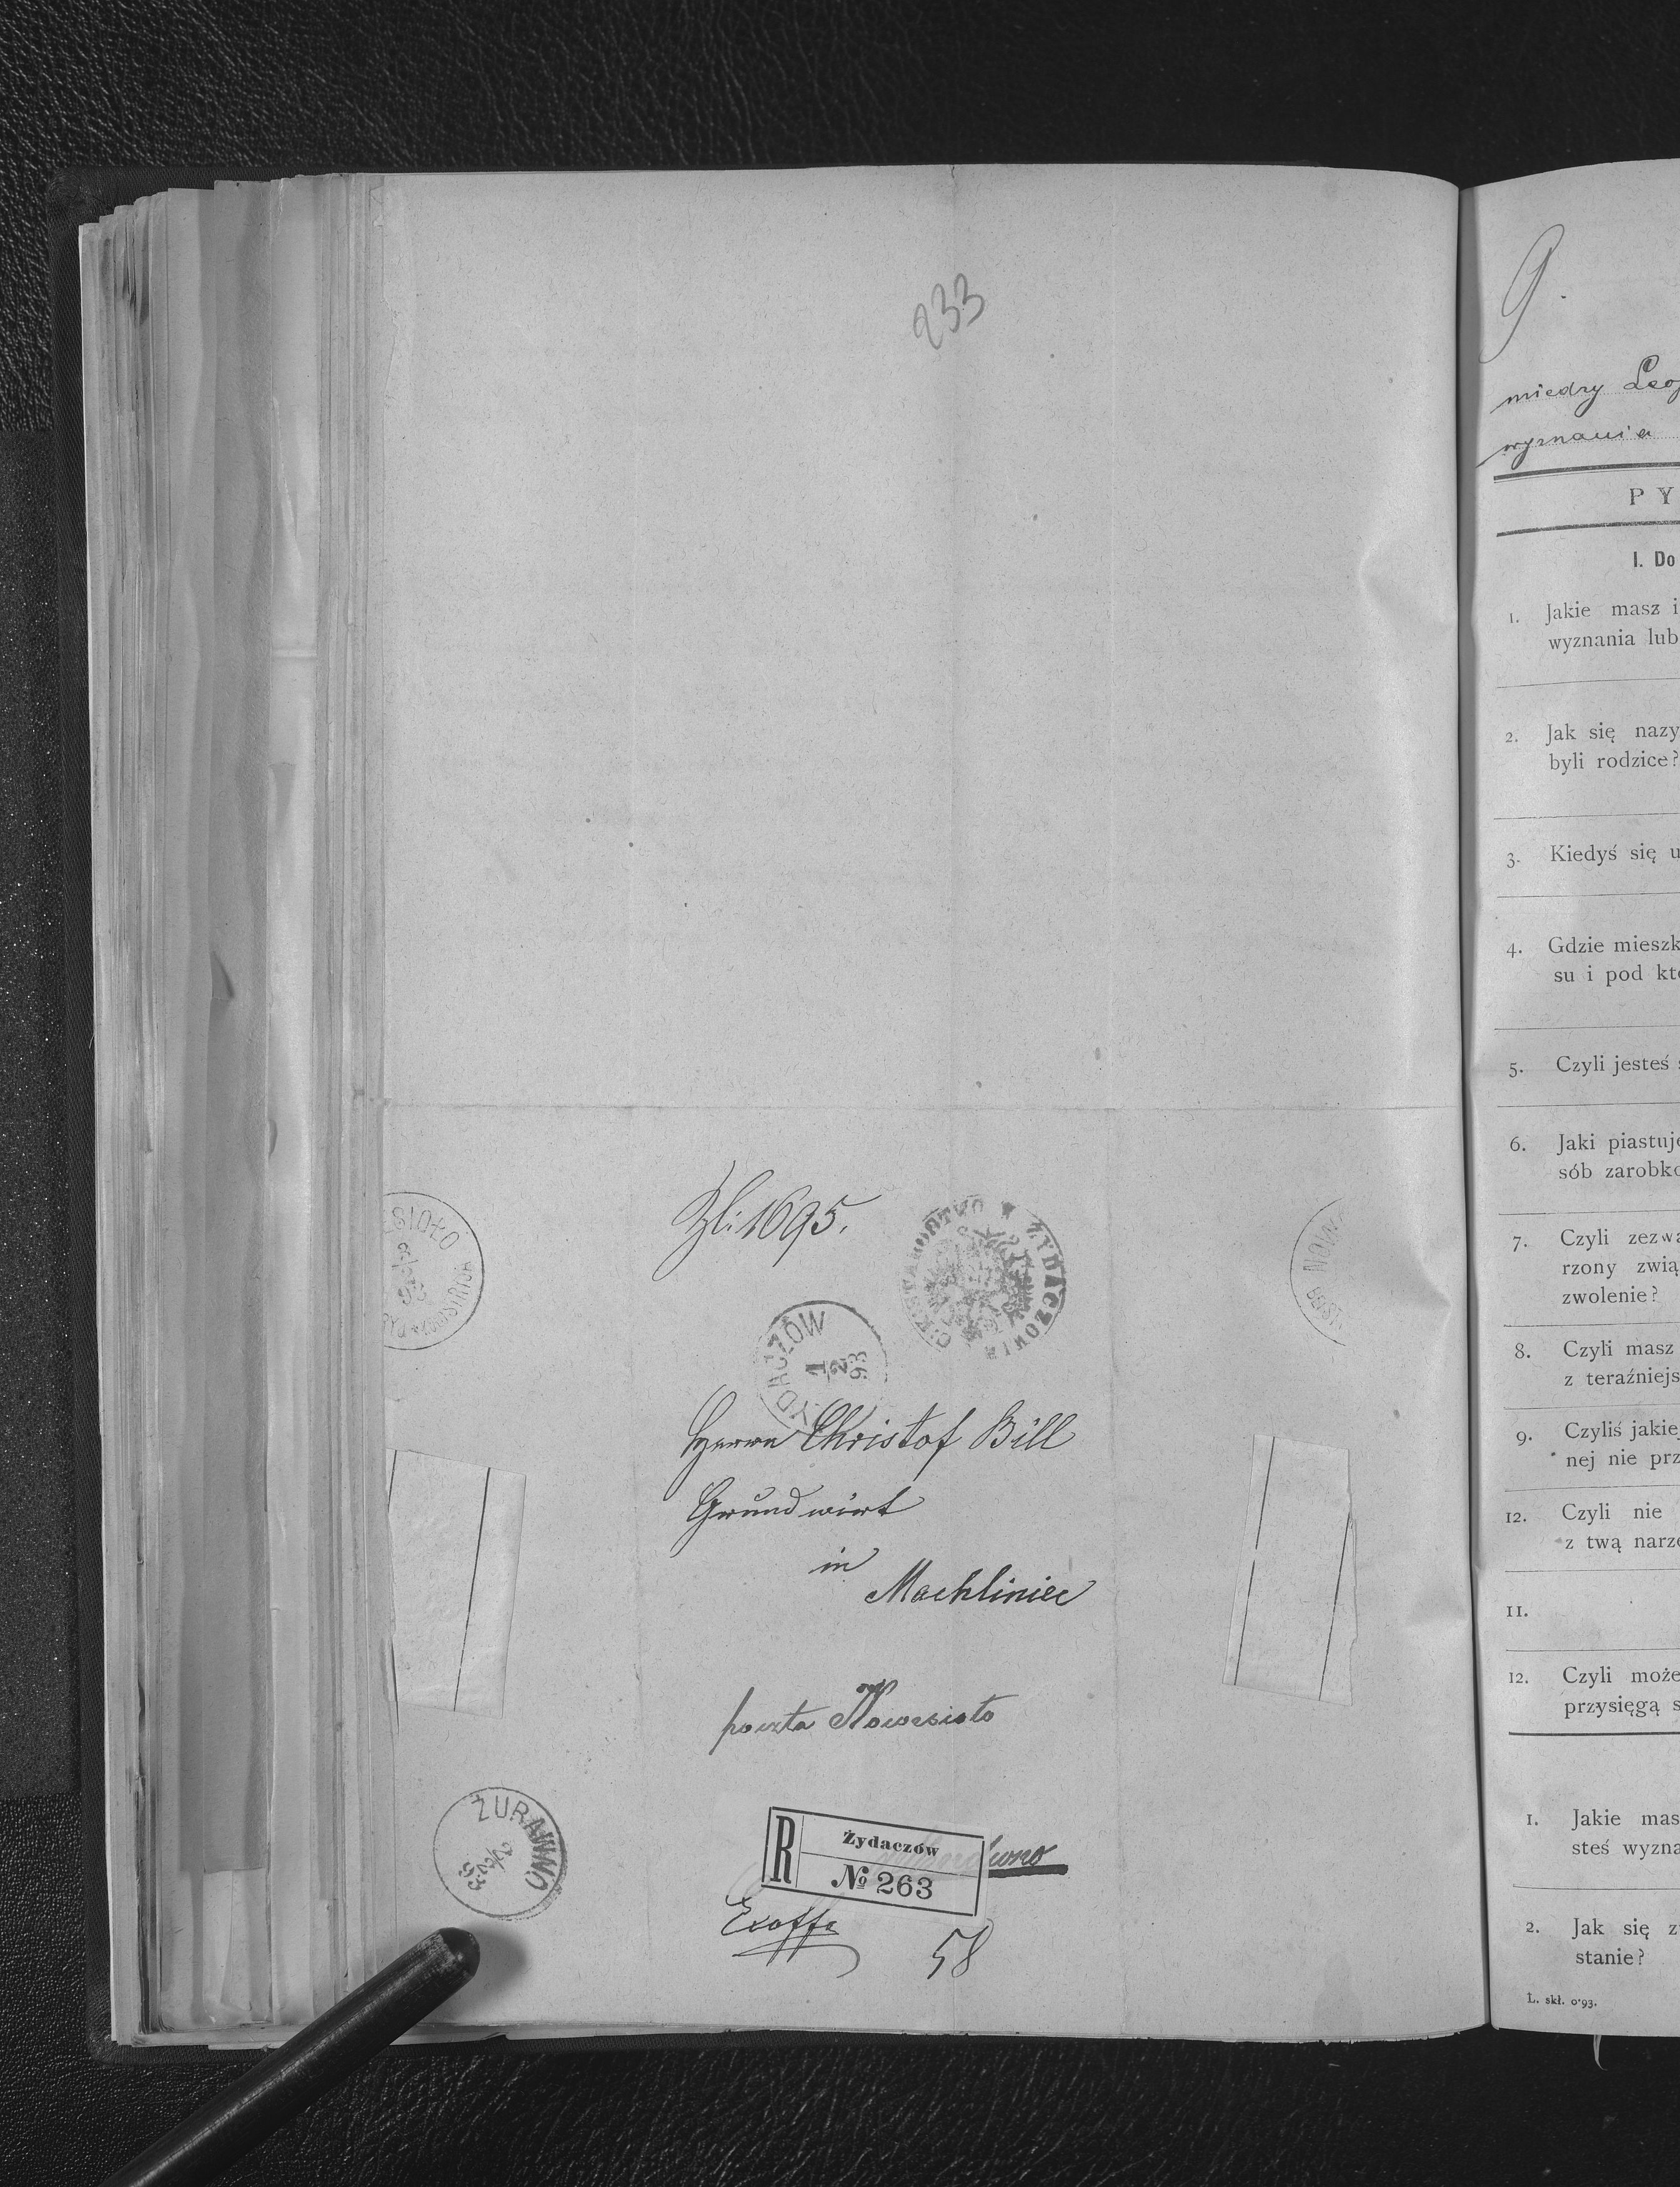 233
Zl: 1695.
C.K. STAROSTWO * ŻYDACZOWIE
ESIOŁO
NOWE
ŻYDACZÓW
1
2
93
Herrn Christof Bill
Grundwirt
in
Machliniec
poczta Nowesioło
ŻURAWNO
R
Żydaczów
№ 263
Exoffo
58
9.
między Leo
wyznania
PY
I. Do
1. Jakie masz i
wyznania lub
2. Jak się nazy
byli rodzice?
3. Kiedyś się u
4. Gdzie mieszk
su i pod kt
5. Czyli jesteś
6. Jaki piastuj
sób zarobk
7. Czyli zezwa
rzony zwią
zwolenie?
8. Czyli masz
z teraźniejs
9. Czyliś jakie
nej nie prz
12. Czyli nie
z twą narz
11.
12. Czyli może
przysięgą s
1. Jakie mas
steś wyzna
2. Jak się z
stanie?
L. skł. 0·93.